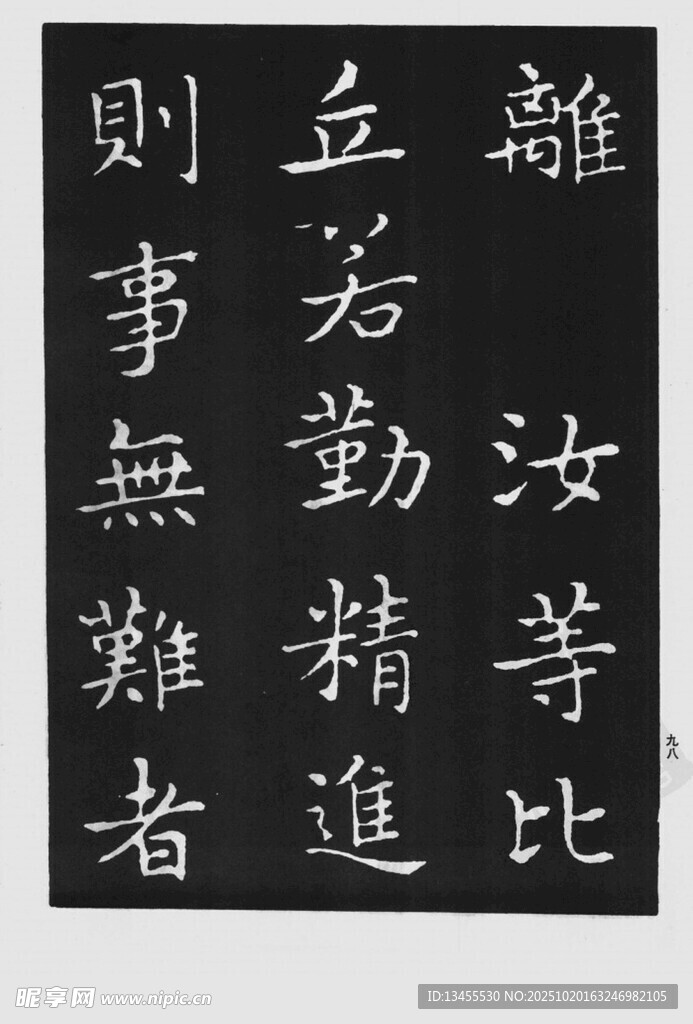 離 汝等比
丘若勤精進
則事無難者
九八
昵享网 www.nipic.cn
ID:13455530 NO:20251020163246982105